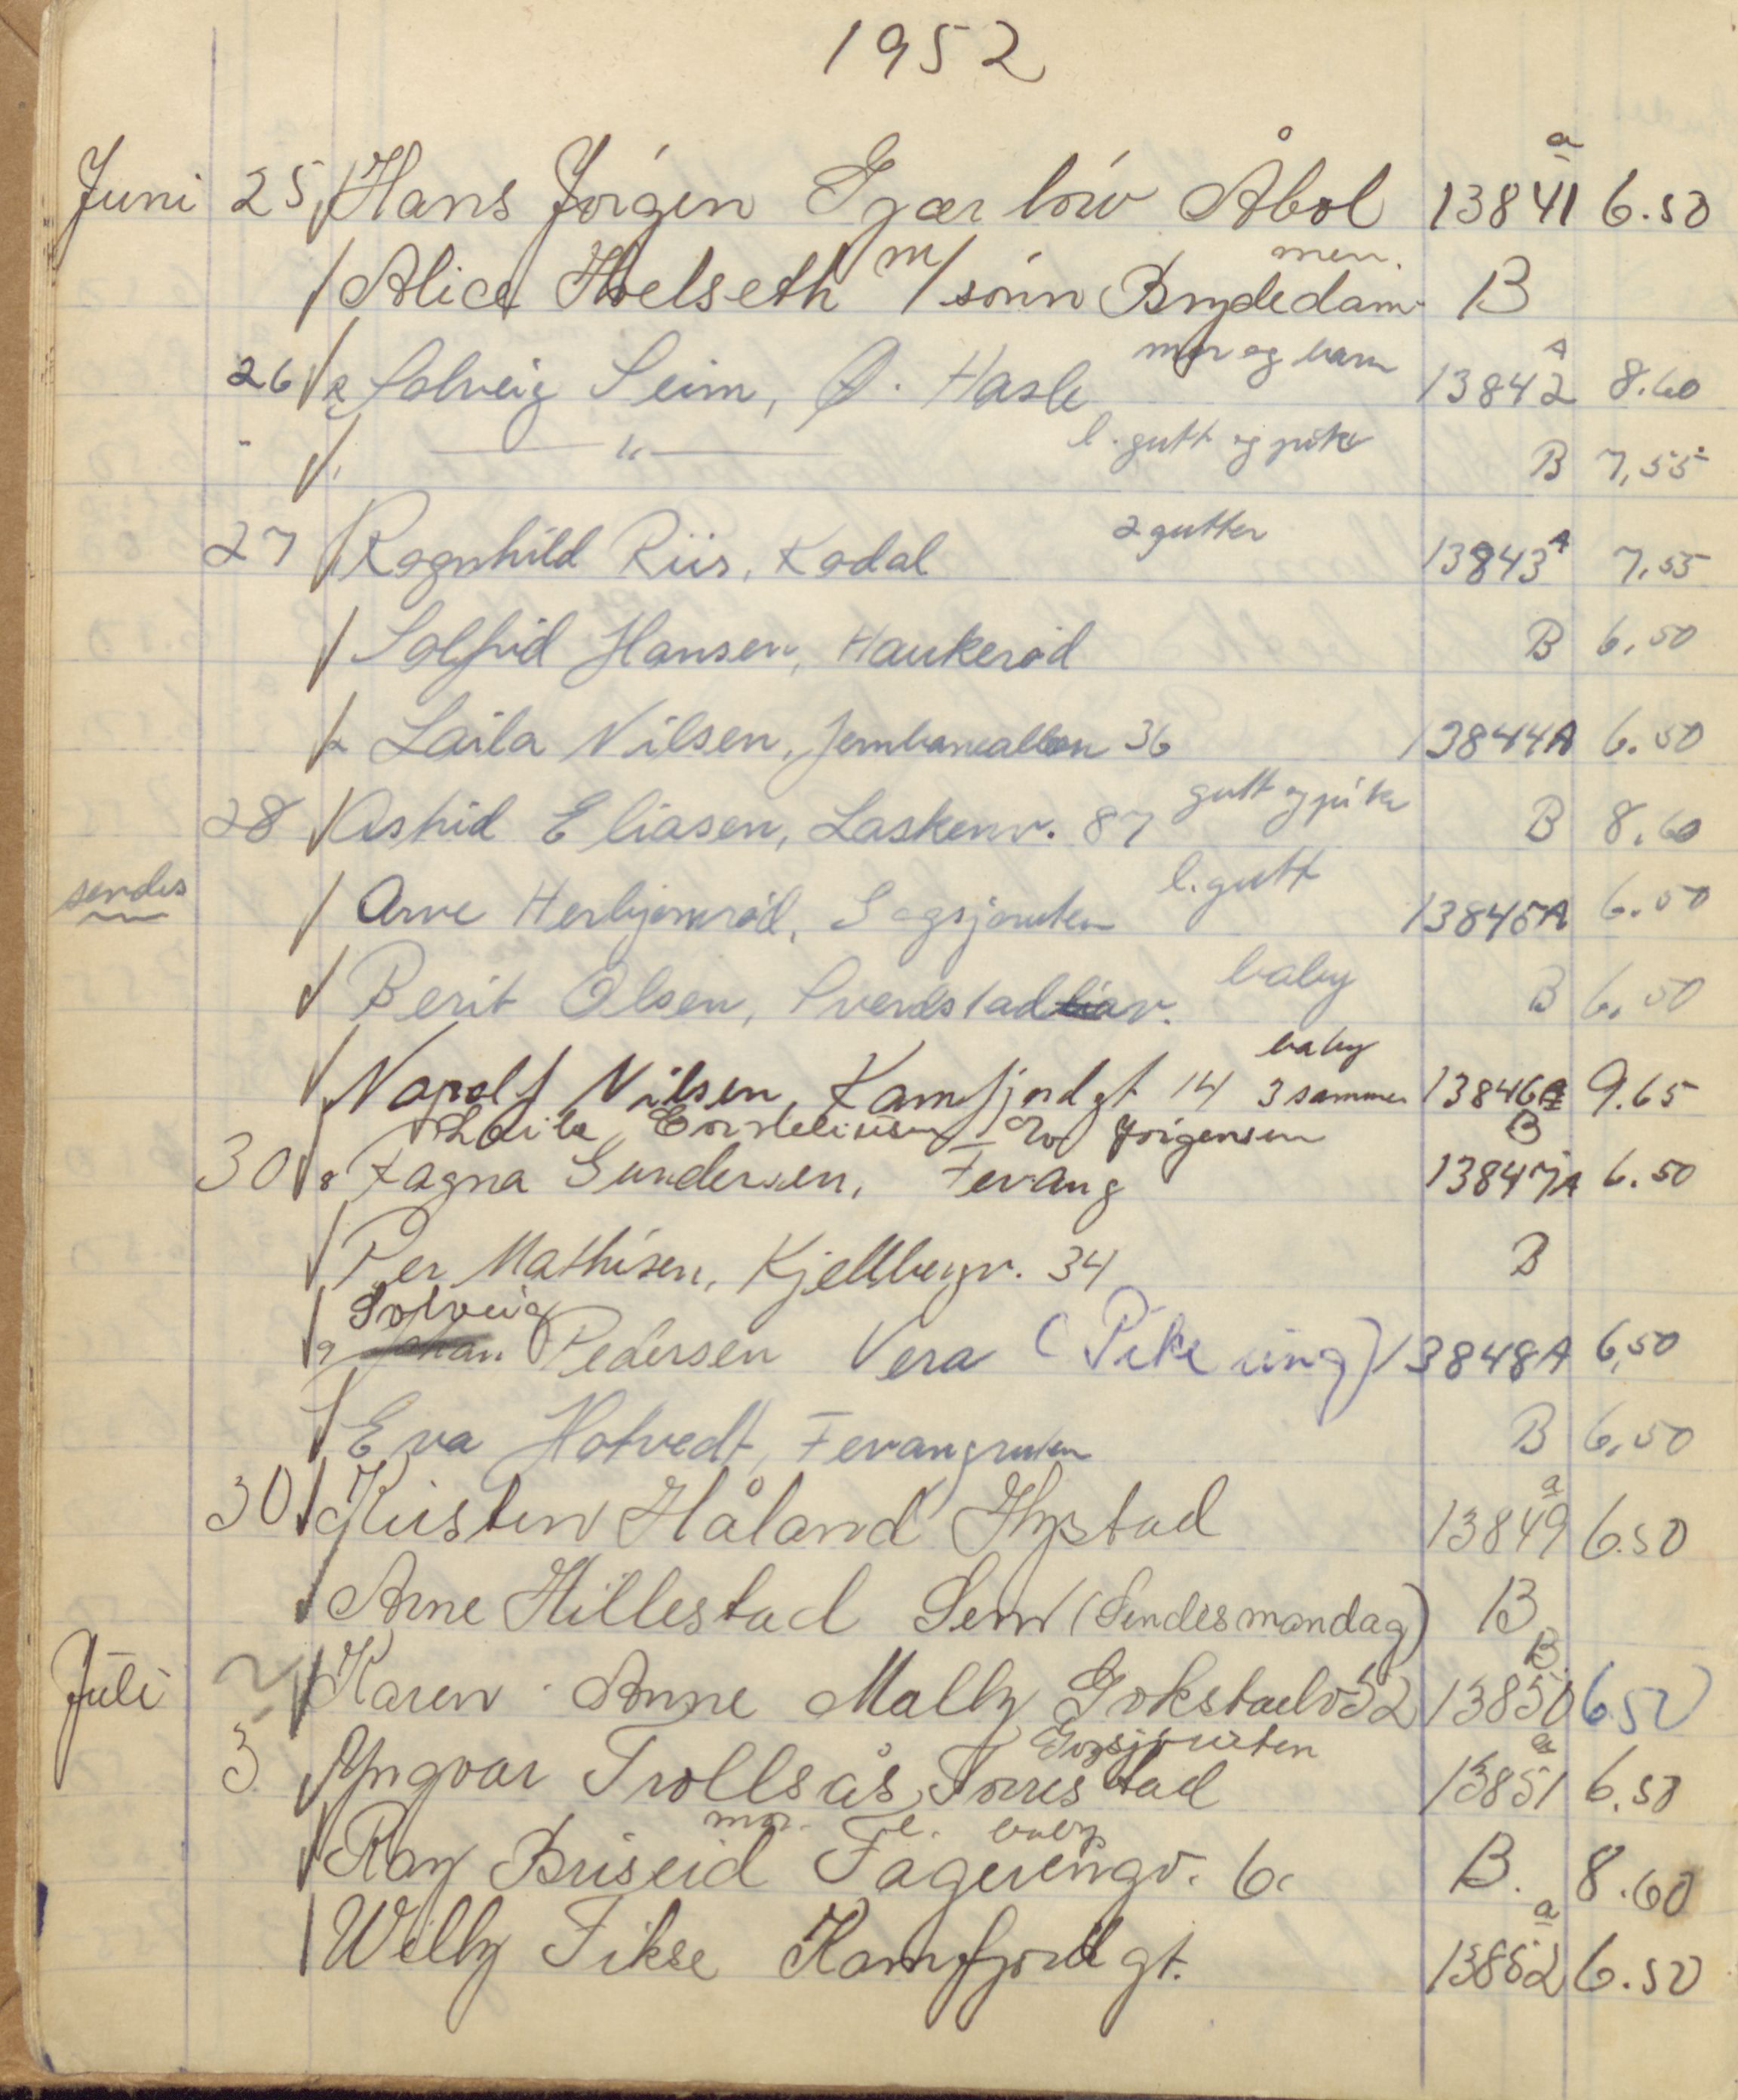 1952
Juni 25 Hans Jörgen Gjærlöw Åbol 13841 a 6.50
Alice Hoelseth m/sönn Brydedam men. B
26 Solveig Seim, Ø. Hasle mor og barn 13842 A 8.60
" — " — l. gutt og pike B 7,55
27 Ragnhild Riis, Kodal 2 gutter 13843 A 7,55
Solfrid Hansen, Haukerød B 6,50
Laila Nilsen, Jernbanealleen 36 13844A 6.50
28 Astrid Eliasen, Laskenv. 87 gutt og pike B 8,60
sendes Arve Herbjørnrød, Gogsjøruten l. gutt 13845A 6.50
Berit Olsen, Sverdstad v. baby B 6,50
Nilsen, Kamfjordgt 14 baby 3 sammen 13846A 9.65
Laila Jörgensen B
30 Ragna Gundersen, Fevang 13847A 6.50
Per Mathisen, Kjellbergv. 34 B
Solveig
Pedersen Vera (Pike ring) 13848A 6,50
Eva Hotvedt, Fevangruten B 6,50
30 Kirsten Håland Hystad 13849 a 6.50
Arne Hillestad Sem (Sendes mandag) B
Juli 2 Karen Anne Mally Gokstadv 52 13850 B 6.50
3 Yngvar Trollsås, Torrestad Gogsjöruten 13851 a 6.50
Ray Briseid Fagerengv. 6. mor. baby B. 8.60
Willy Fikse Kamfjordgt. 13852 a 6.50